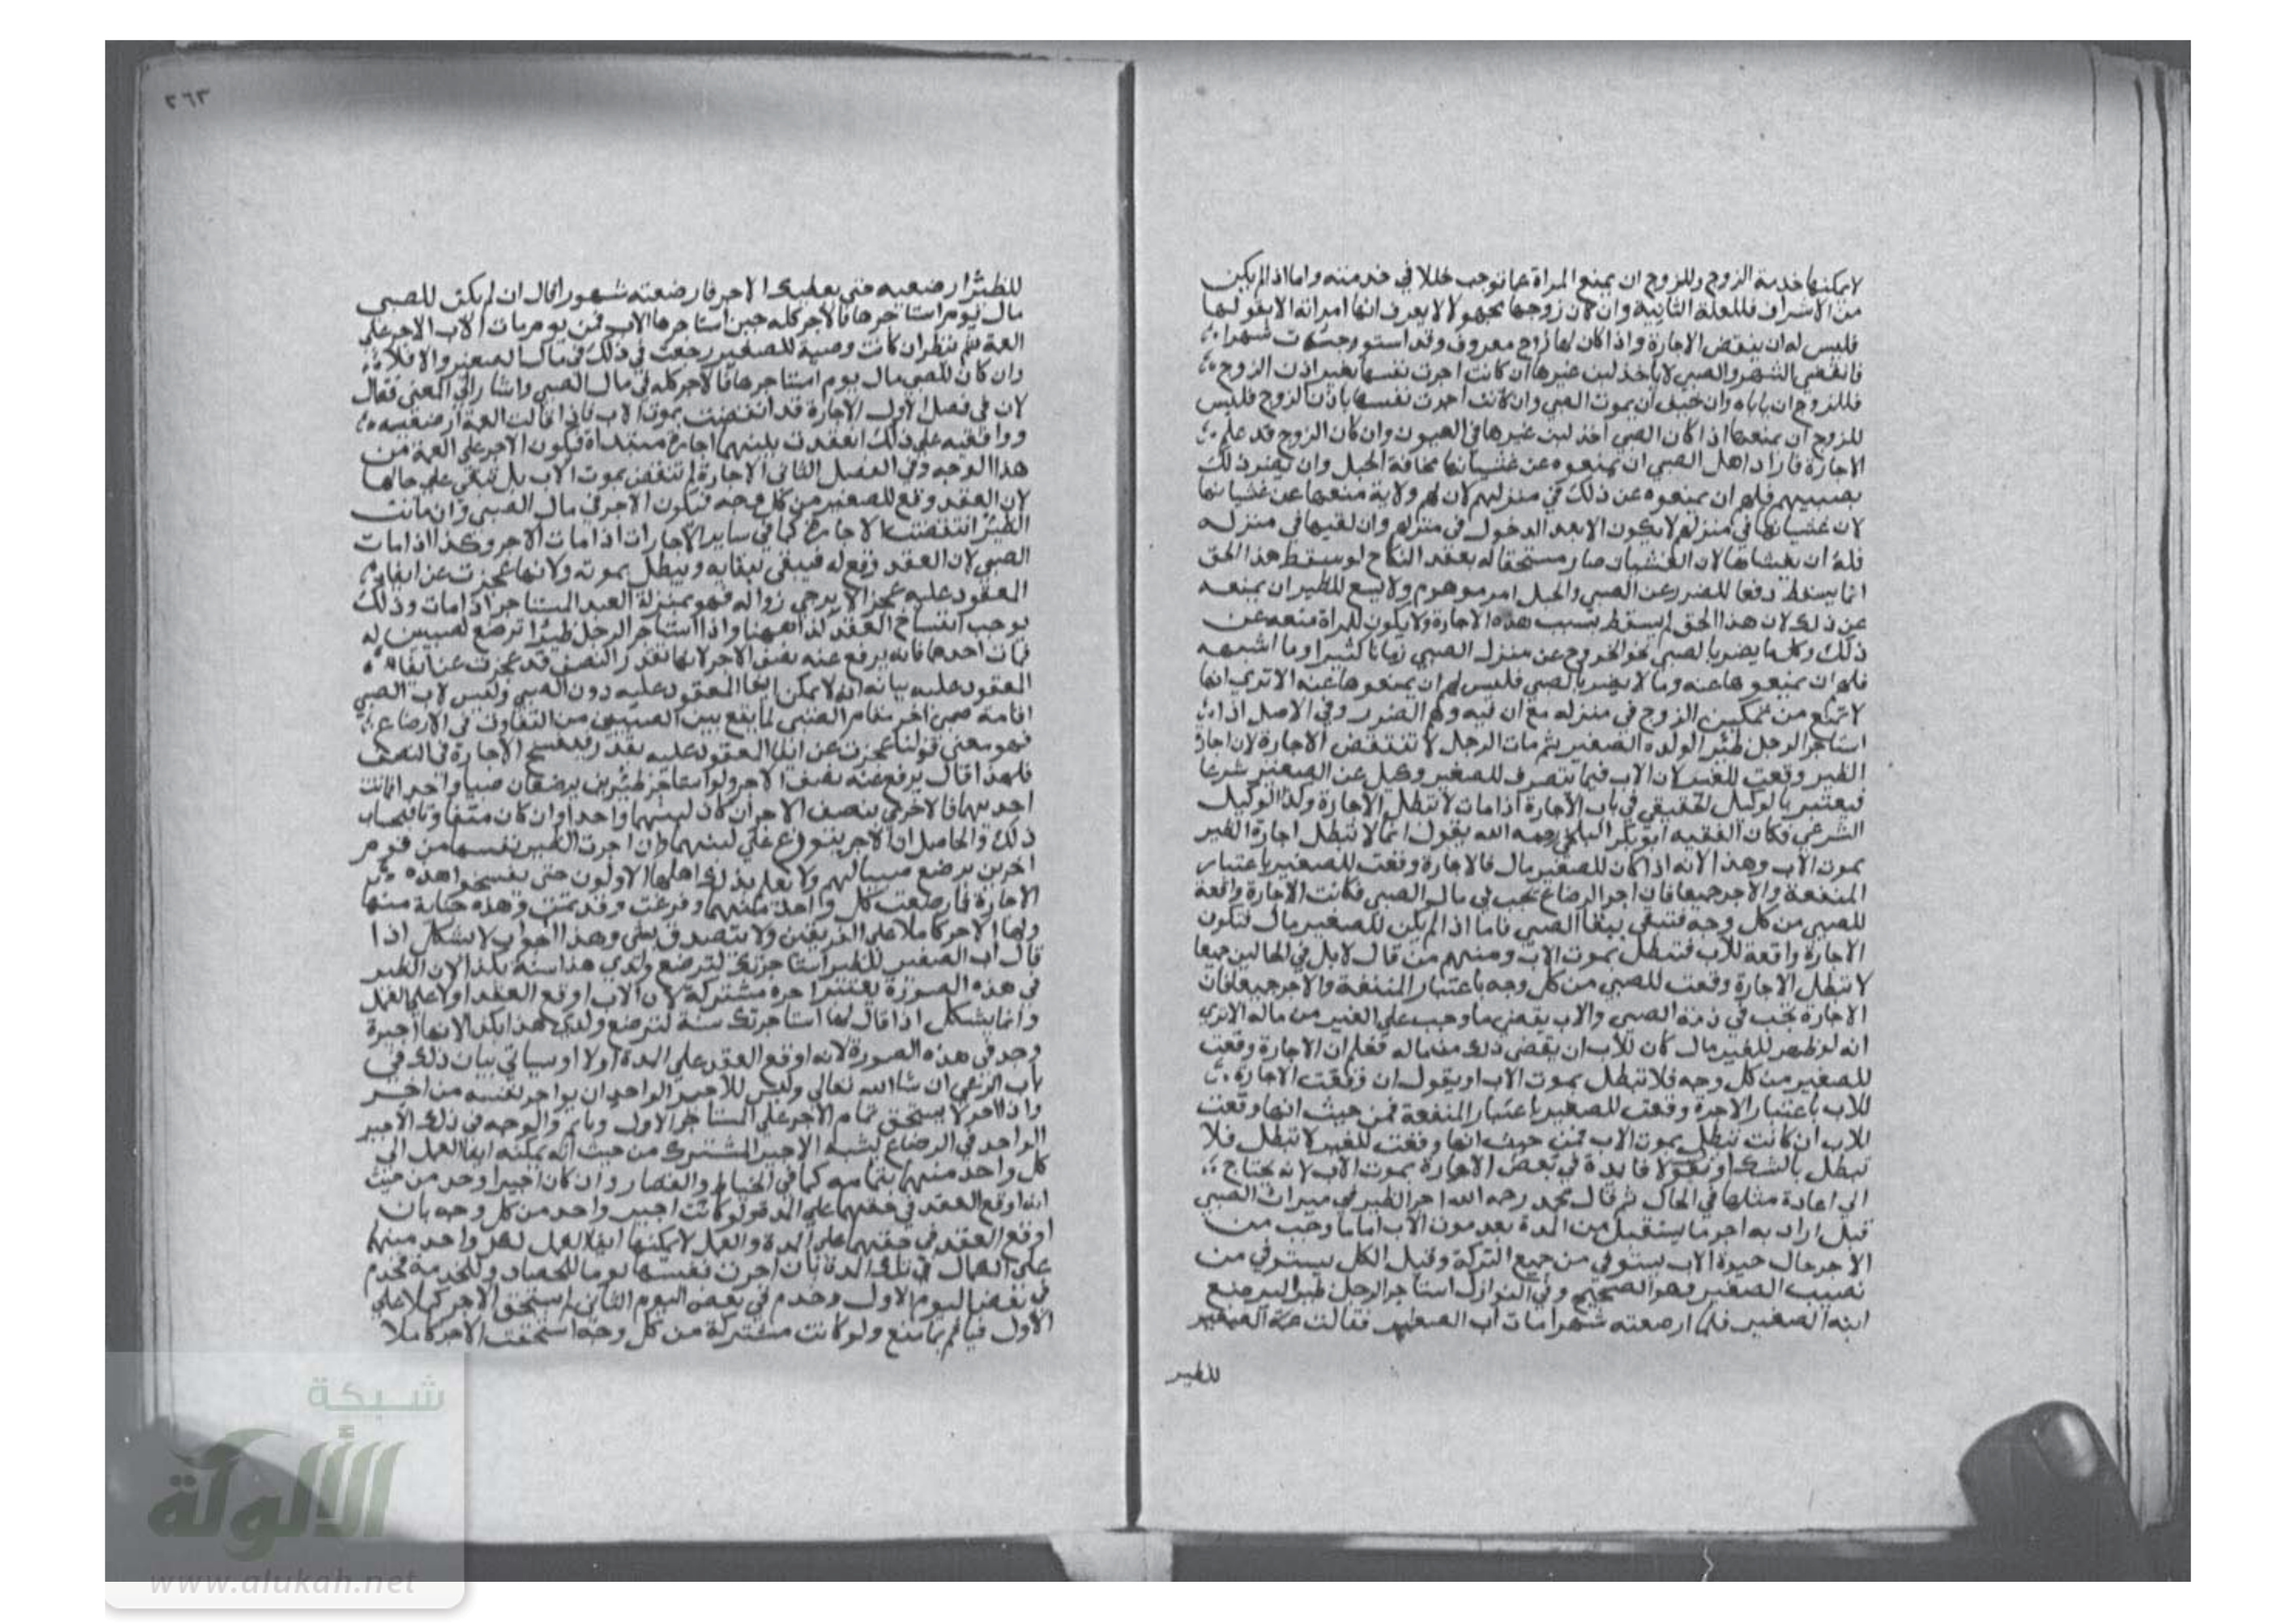 لا يمكنها خدمة الزوج وللزوج ان يمنع المراة عما توجب خللا في خدمته واما اذا لم يكن
من الاشراف فللعلة الثانية وان كان زوجها مجهولا لا يعرف انها امراته الا بقولها
فليس له ان ينقض الاجارة واذا كان لها زوج معروف وقد استوجرت شهرا
فانقضي الشهر والصبي لا ياخذ لبن غيرها ان كانت اجرت نفسها بغير اذن الزوج
فللزوج ان ياباه وان خيف ان يموت الصبي وان كانت اجرت نفسها باذن الزوج فليس
للزوج ان يمنعها اذا كان الصبي اخذ لبن غيرها في العيون وان كان الزوج قد علم
الاجارة فاراد اهل الصبي ان يمنعوه عن غشيانها مخافة الحبل وان يضر ذلك
بصبيهم فلهم ان يمنعوه عن ذلك في منزلهم لان لهم ولاية منعها عن غشيانها
لان غشيانها في منزلهم لا يكون الا بعد الدخول في منزلهم وان لقيها في منزله
فله ان يغشاها لان الغشيان صار مستحقا له بعقد النكاح لو سقط هذا الحق
انما يسقط دفعا للضرر عن الصبي والحبل امر موهوم ولا يسع للظير ان يمنعه
عن ذلك لان هذا الحق لم يسقط بسبب هذه الاجارة ولا يكون للمراة منعه عن
ذلك وكل ما يضر بالصبي نحو الخروج عن منزل الصبي زمانا كثيرا وما اشبهه
فلهم ان يمنعوها عنه وما لا يضر بالصبي فليس لهم ان يمنعوها عنه الا تري انها
لا تمنع من تمكين الزوج في منزله مع ان فيه وهم الضرر وفي الاصل اذا
استاجر الرجل ظئرا لولده الصغير ثم مات الرجل لا تنتقض الاجارة لان اجارة
الظير وقعت للصغير لان الاب فيما يتصرف للصغير وكيل عن الصغير شرعا
فيعتبر بالوكيل الحقيقي في باب الاجارة اذا مات لا تبطل الاجارة وكذا الوكيل
الشرعي وكان الفقيه ابو بكر البلخي رحمه الله يقول انما لا تبطل اجارة الظير
بموت الاب وهذا لانه اذا كان للصغير مال فالاجارة وقعت للصغير باعتبار
المنفعة والاجر جميعا فان اجر الرضاع يجب في مال الصبي فكانت الاجارة واقعة
للصبي من كل وجه فتبقي ببقا الصبي فاما اذا لم يكن للصغير مال فتكون
الاجارة واقعة للاب فتبطل بموت الاب ومنهم من قال لا بل في الحالين جميعا
لا تبطل الاجارة وقعت للصبي من كل وجه باعتبار المنفعة والاجر جميعا فان
الاجارة تجب في ذمة الصبي والاب يقضي ما وجب علي الصغير من ماله الا تري
انه لو ظهر للصغير مال كان للاب ان يقضي ذلك من ماله فعلم ان الاجارة وقعت
للصغير من كل وجه فلا تبطل بموت الاب او يقول ان وقعت الاجارة
للاب باعتبار الاجرة وقعت للصغير باعتبار المنفعة فمن حيث انها وقعت
للاب ان كانت تبطل بموت الاب فمن حيث انها وقعت للصغير لا تبطل فلا
تبطل بالشك او نقول لا فايدة في نقض الاجارة بموت الاب لانه يحتاج
الي اعادة مثلها في الحال ثم قال محمد رحمه الله اجر الظير في ميراث الصبي
قيل اراد به اجر ما يستقبل من المدة بعد موت الاب اما ما وجب من
الاجر حال حيوة الاب يستوفي من جميع التركة وقيل الكل يستوفي من
نصيب الصغير وهو الصحيح وفي النوازل استاجر الرجل ظيرا لترضع
ابنه الصغير فلما ارضعته شهرا مات اب الصغير فقالت عمة الصغير
للظير
٢٦٣
للظئر ارضعيه حتي نعطيك الاجر فارضعته شهورا قال ان لم يكن للصبي
مال يوم استاجرها فالاجر كله حين استاجرها الاب فمن يوم مات الاب الاجر علي
العمة ثم ينظر ان كانت وصية للصغير رجعت في ذلك في مال الصغير والا فلا
وان كان للصبي مال يوم استاجرها فالاجر كله في مال الصبي واشار الي المعني فقال
لان في فصل الاول الاجارة قد انتقضت بموت الاب فاذا قالت العمة ارضعيه
ووافقتيه علي ذلك انعقدت بينهما اجارة مبتداة فيكون الاجر علي العمة من
هذا الوجه وفي الفصل الثاني الاجارة لم تنتقض بموت الاب بل تبقي علي حالها
لان العقد وقع للصغير من كل وجه فيكون الاجر في مال الصبي وان ماتت
الظير انتقضت الاجارة كما في ساير الاجارات اذا مات الاجر وكذا اذا مات
الصبي لان العقد وقع له فيبقي ببقايه ويبطل بموته ولانها عجزت عن ايفاء
المعقود عليه عجزا لا يرجي زواله فهو بمنزلة العبد المستاجر اذا مات وذلك
يوجب انفساخ العقد كذا ههنا واذا استاجر الرجل ظيرا ترضع صبيين له
فمات احدهما فانه يرفع عنه نصف الاجر لانها بقدر النصف قد عجزت عن ايفاء
المعقود عليه بيانه انه لا يمكن ايفا المعقود عليه دون الصبي وليس لاب الصبي
اقامة صبي اخر مقام الصبي لما يقع بين الصبيين من التفاوت في الارضاع
فهو معني قولنا عجزت عن ايفا المعقود عليه بقدر فينفسخ الاجارة في النصف
فلهذا قال يرفع عنه نصف الاجر ولو استاجر ظيرين يرضعان صبيا واحدا فماتت
احديهما فالاخري بنصف الاجر ان كان لبنهما واحدا وان كان متفاوتا فبحساب
ذلك والحاصل ان الاجر يتوزع علي لبنهما وان اجرت الظير نفسها من قوم
اخرين ترضع صبيا لهم ولا يعلم بذلك اهلها الاولون حتي يفسخوا هذه
الاجارة فارضعت كل واحد منهما وفرغت وقد تمت وهذه جناية منها
ولها الاجر كاملا علي الفريقين ولا تتصدق بشي وهذا الجواب لا يشكل اذا
قال اب الصغير للظير استاجرتك لترضع ولدي هذا سنة بكذا لان الظير
في هذه الصورة يعتبر اجيرة مشتركة لان الاب اوقع العقد اولا علي العمل
وانما يشكل اذا قال لها استاجرتك سنة لترضع ولدي هذا بكذا لانها اجيرة
وحد في هذه الصورة لانه اوقع العقد علي المدة اولا وسياتي بيان ذلك في
باب الرعي ان شا الله تعالي وليس للاجير الواحد ان يواجر نفسه من اخر
واذا اجر لا يستحق تمام الاجر علي المستاجر الاول وياثم والوجه في ذلك الاجير
الواحد في الرضاع يشبه الاجير المشترك من حيث انه يمكنه ايفا العمل الي
كل واحد منهما بتمامه كما في الخياط والقصار وان كان اجيرا وحد من حيث
انه اوقع العقد في حقهما علي المدة ولو كانت اجير واحد من كل وجه بان
اوقع العقد في حقهما علي المدة والعمل لا يمكنها ايفا العمل لكل واحد منهما
علي الكمال في تلك المدة بان اجرت نفسها يوما للحصاد وللخدمة فخدم
في بعض اليوم الاول وخدم في بعض اليوم الثاني لم يستحق الاجر كملا علي
الاول فياثم بما صنع ولو كانت مشتركة من كل وجه استحقت الاجر كاملا
شبكة
الألوكة
www.alukah.net